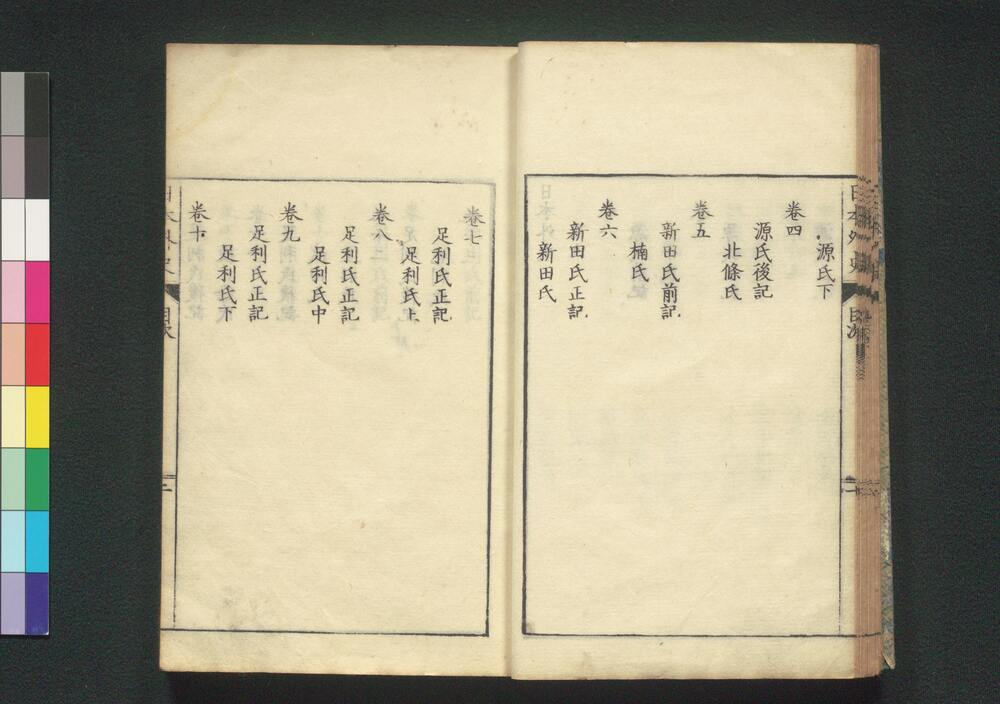 源氏下
卷四
源氏後記
北條氏
卷五
新田氏前記
楠氏
卷六
新田氏正記
新田氏
卷七
足利氏正記
足利氏上
卷八
足利氏正記
足利氏中
卷九
足利氏正記
足利氏下
卷十
日本外史
目次
二